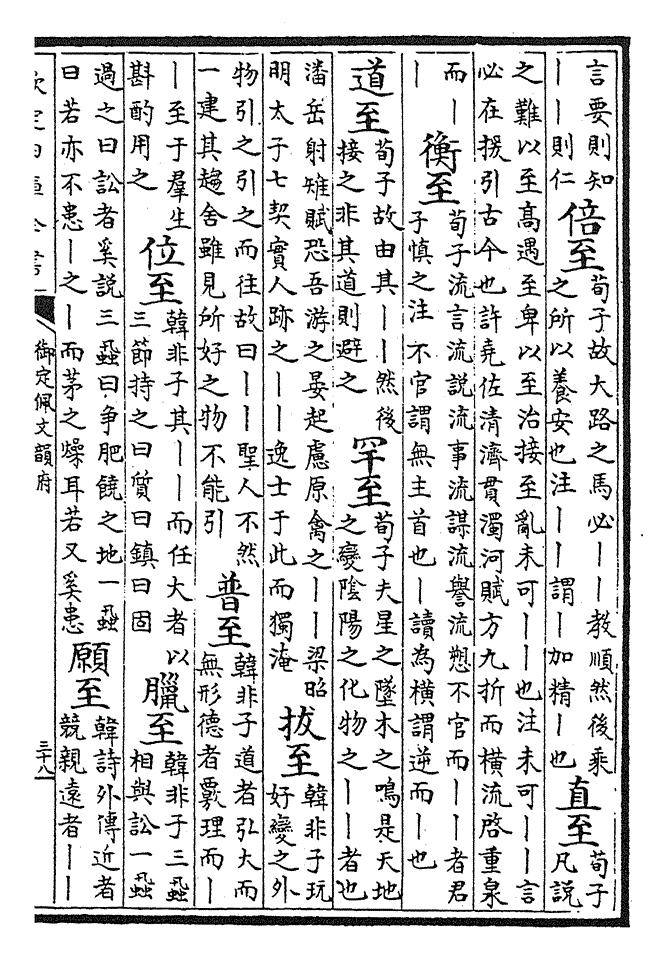 言要則知
丨丨則仁
倍至
荀子故大路之馬必丨丨教順然後乗
之所以養安也注丨丨謂丨加精丨也
直至
荀子
凡說
之難以至髙遇至卑以至治接至亂未可丨丨也注未可丨丨言
必在援引古今也許堯佐清濟貫濁河賦方九折而橫流啓重泉
而丨
丨
衡至
荀子流言流說流事流謀流譽流愬不官而丨丨者君
子慎之注不官謂無主首也丨讀為橫謂逆而丨也
道至
荀子故由其丨丨然後
接之非其道則避之
罕至
荀子夫星之墜木之鳴是天地
之變隂陽之化物之丨丨者也
潘岳射雉賦恐吾游之晏起慮原禽之丨丨梁昭
明太子七契實人跡之丨丨逸士于此而獨淹
拔至
韓非子玩
好變之外
物引之引之而往故曰丨丨聖人不然
一建其趨舍雖見所好之物不能引
普至
韓非子道者弘大而
無形德者覈理而丨
丨至于羣生
斟酌用之
位至
韓非子其丨丨而任大者以
三節持之曰質曰鎮曰固
臘至
韓非子三蝨
相與訟一蝨
過之曰訟者奚說三蝨曰争肥饒之地一蝨
曰若亦不患丨之丨而茅之燥耳若又奚患
願至
韓詩外傳近者
競親遠者丨丨
欽定四庫全書
御定佩文韻府
三十八